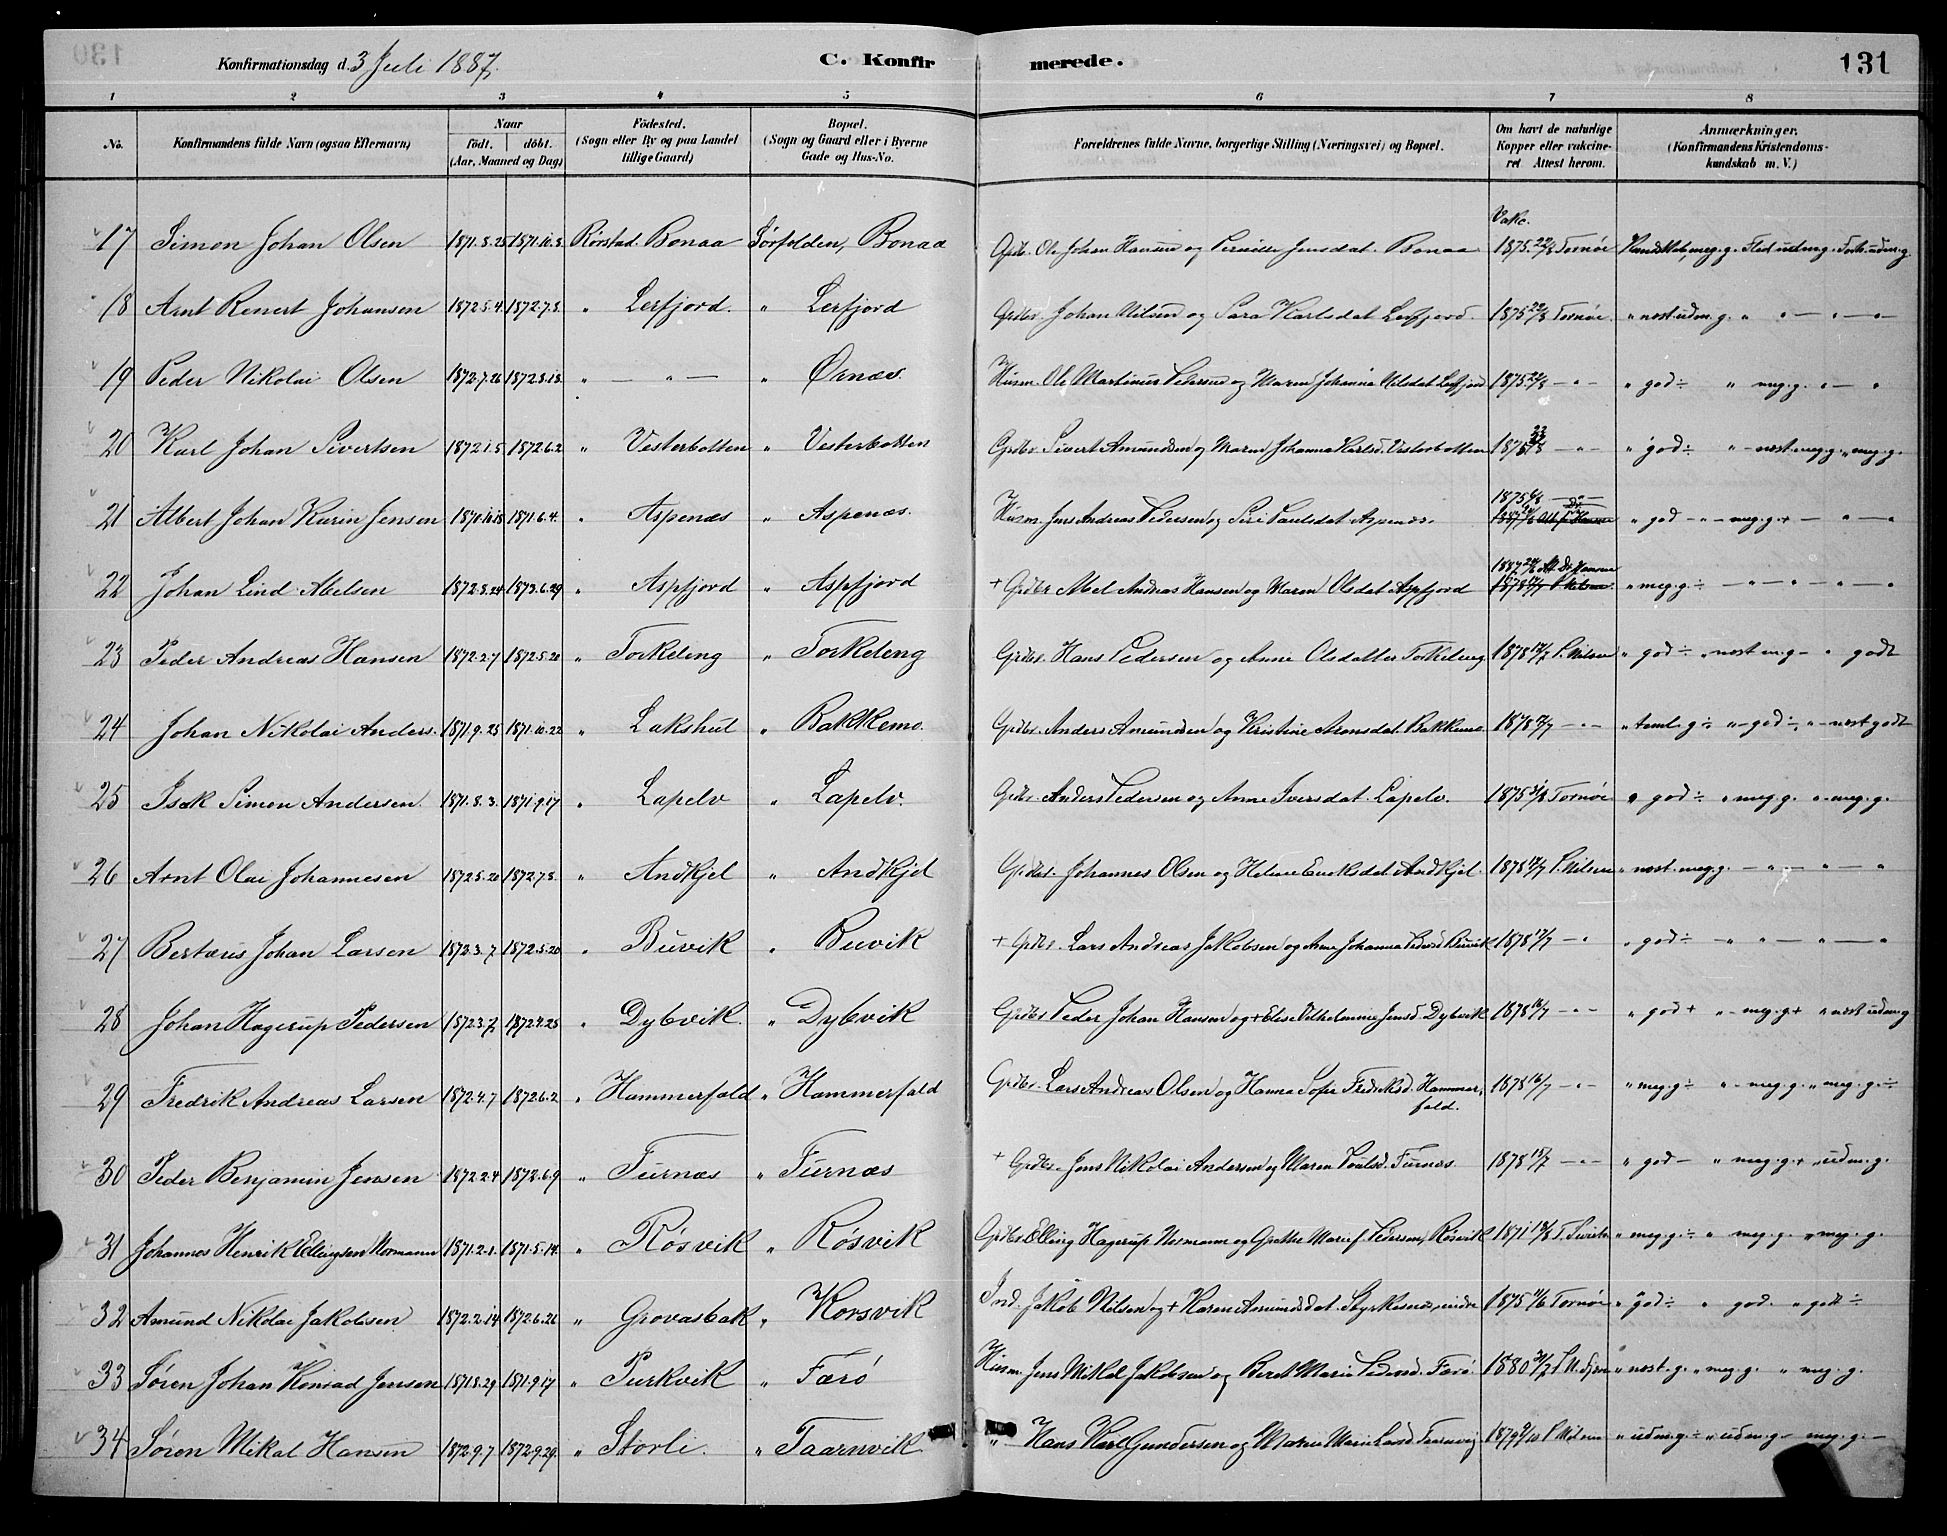 Konfirmationsdag d. 3 Juli 1887. C. Konfirmerede. 131
1 2 3 4 5 6 7 8
No. Konfirmandens fulde Navn (ogsaa Efternavn) Naar födt. döbt. (Aar, Maaned og Dag) Födested. (Sogn eller By og paa Landet tillige Gaard) Bopæl. (Sogn og Gaard eller i Byerne Gade og Hus-No. Forældrenes fulde Navne, borgerlige Stilling (Næringsvei) og Bopæl. Om havt de naturlige Kopper eller vakcineret. Attest herom. Anmærkninger. (Konfirmandens Kristendomskundskab m. V.)
Vakc.
17 Simon Johan Olsen 1871.8.25 1871.10.8 Rørstad. Bonaa Sørfolden, Bonaa Grdbr. Ole Johan Hansen og Pernille Jensdat. Bonaa 1875 22/8 Tornøe Kundskab, meg. g. Flid udm. g. Forh. udm. g.
18 Arnt Renert Johansen 1872.5.4 1872.7.8. " Lerfjord. " Lerfjord Grdbr. Johan Nilsen og Sara Karlsdat Lerfjord. 1875 22/8 Tornøe " nost. udm. g. " " — " —
19 Peder Nikolai Olsen 1872.7.26 1872.8.18. " — " — " Ørnæs. Husm. Ole Martinus Pedersen og Maren Johanna Nilsdat Lerfjord 1875 22/8 — " — " god ÷ " meg. g. " — "
20 Karl Johan Sivertsen 1872.1.5 1872.6.2 " Vesterbotten " Vesterbotten Grdbr. Sivert Amundsen og Maren Johanna Karlsd. Vesterbotten 1875 22/8 — " — " god ÷ " - nost. meg. g. " meg. g.
21 Albert Johan Kurin Jensen 1871.6.4. " Aspenæs " Aspenæs. Husm. Jens Andreas Pedersen og Siri Paulsdat Aspenæs. 1875 — " — " god — " — meg. g. + — " — "
22 Johan Lind Abelsen 1872.8.24 1873.6.29 " Aspfjord " Aspfjord + Grdbr. Abel Andreas Hansen og Maren Olsdat Aspfjord 1887 Dr. Hansen " meg. g. ÷ — " — " — " — "
23 Peder Andreas Hansen 1872.2.7 1872.5.20 " Torkeleng " Torkeleng Grdbr. Hans Pedersen og Anne Olsdatter Torkeleng 1878 17/7 P. Nilsen " god ÷ " nost. m. g - " godt
24 Johan Nikolai Anders. 1871.9.25 1871.10.22 " Lakshul " Bakkemo. Grdbr. Anders Amundsen og Kristine Aronsdat. Bakkemo. 1878 17/7 — " — " teml. g ÷ " - god ÷ " - nost godt
25 Isak Simon Andersen. 1871.8.3. 1871.9.17 " Lapelv " Lapelv. Grdbr. Anders Pedersen og Anne Iversdat. Lapelv. 1875 Tornøe " god ÷ " meg. g. " - meg. g.
26 Arnt Olai Johannesen 1872.5.20 1872.7.8. " Andkjel " Andkjel Grdbr. Johannes Olsen og Helene Enoksdat Andkjel. 1878 17/7 P. Nilsen " nost. meg. g. — " — " — "
27 Bertæus Johan Larsen 1872.3.7 1872.5.20 " Buvik " Buvik + Grdbr. Lars Andreas Jakobsen og Ane Johanna Pedersd Buvik 1878 17/7 — " " god ÷ — " " — " — "
28 Johan Hagerup Pedersen 1872.3.7. 1872.4.25 " Dybvik. " Dybvik Grdbr. Peder Johan Hansen og + Elise Vilhelmine Jensd. Dybvik 1878 16/7 — " — " god + " - meg. g + " nost udm. g
29 Fredrik Andreas Larsen 1872.4.7 1872.6.2 " Hammerfald " Hammerfald Grdbr. Lars Andreas Olsen og Hanna Sofie Fredriksd. Hammerfald. 1878 16/7 — " — " meg. g ÷ " - meg. g. " meg. g. ÷
30 Peder Benjamin Jensen 1872.2.4 1872.6.9 " Furnæs " Furnæs + Grdbr. Jens Nikolai Andersen og Maren Poulsd. Furnæs. 1878 — " — " god — " meg. g. + " udm. g.
31 Johannes Henrik Ellingsen Normann 1871.2.1. 1871.5.14. " Røsvik " Røsvik Grdbr. Elling Hagerup Normann og Grethe Marie f. Pedersen, Røsvik 1871 " meg. g. ÷ " meg. g. " meg. g.
32 Amund Nikolai Jakobsen 1872.2.14 1872.6.26 " Grovasbak " Korsvik Ind. Jakob Nilsen og + Karen Amundsdat. Styrkesnes, indre 1875 Tornøe " god ÷ " god. " godt ÷
33 Søren Johan Konrad Jensen 1871.8.29 1871.9.17 " Purkvik " Færø Husm. Jens Mikal Jakobsen og Beret Marie Pedersd. Færø. 1880 " nost. g. " meg. g. " meg. g.
34 Søren Mikal Hansen 1872.9.7 1872.9.29. " Storli. " Taarnvik " Hans Karl Gundersen og Maren Marie Larsd Taarnvig 1879 P. Nilsen " udm. g. ÷ " udm. g - meg. g. —